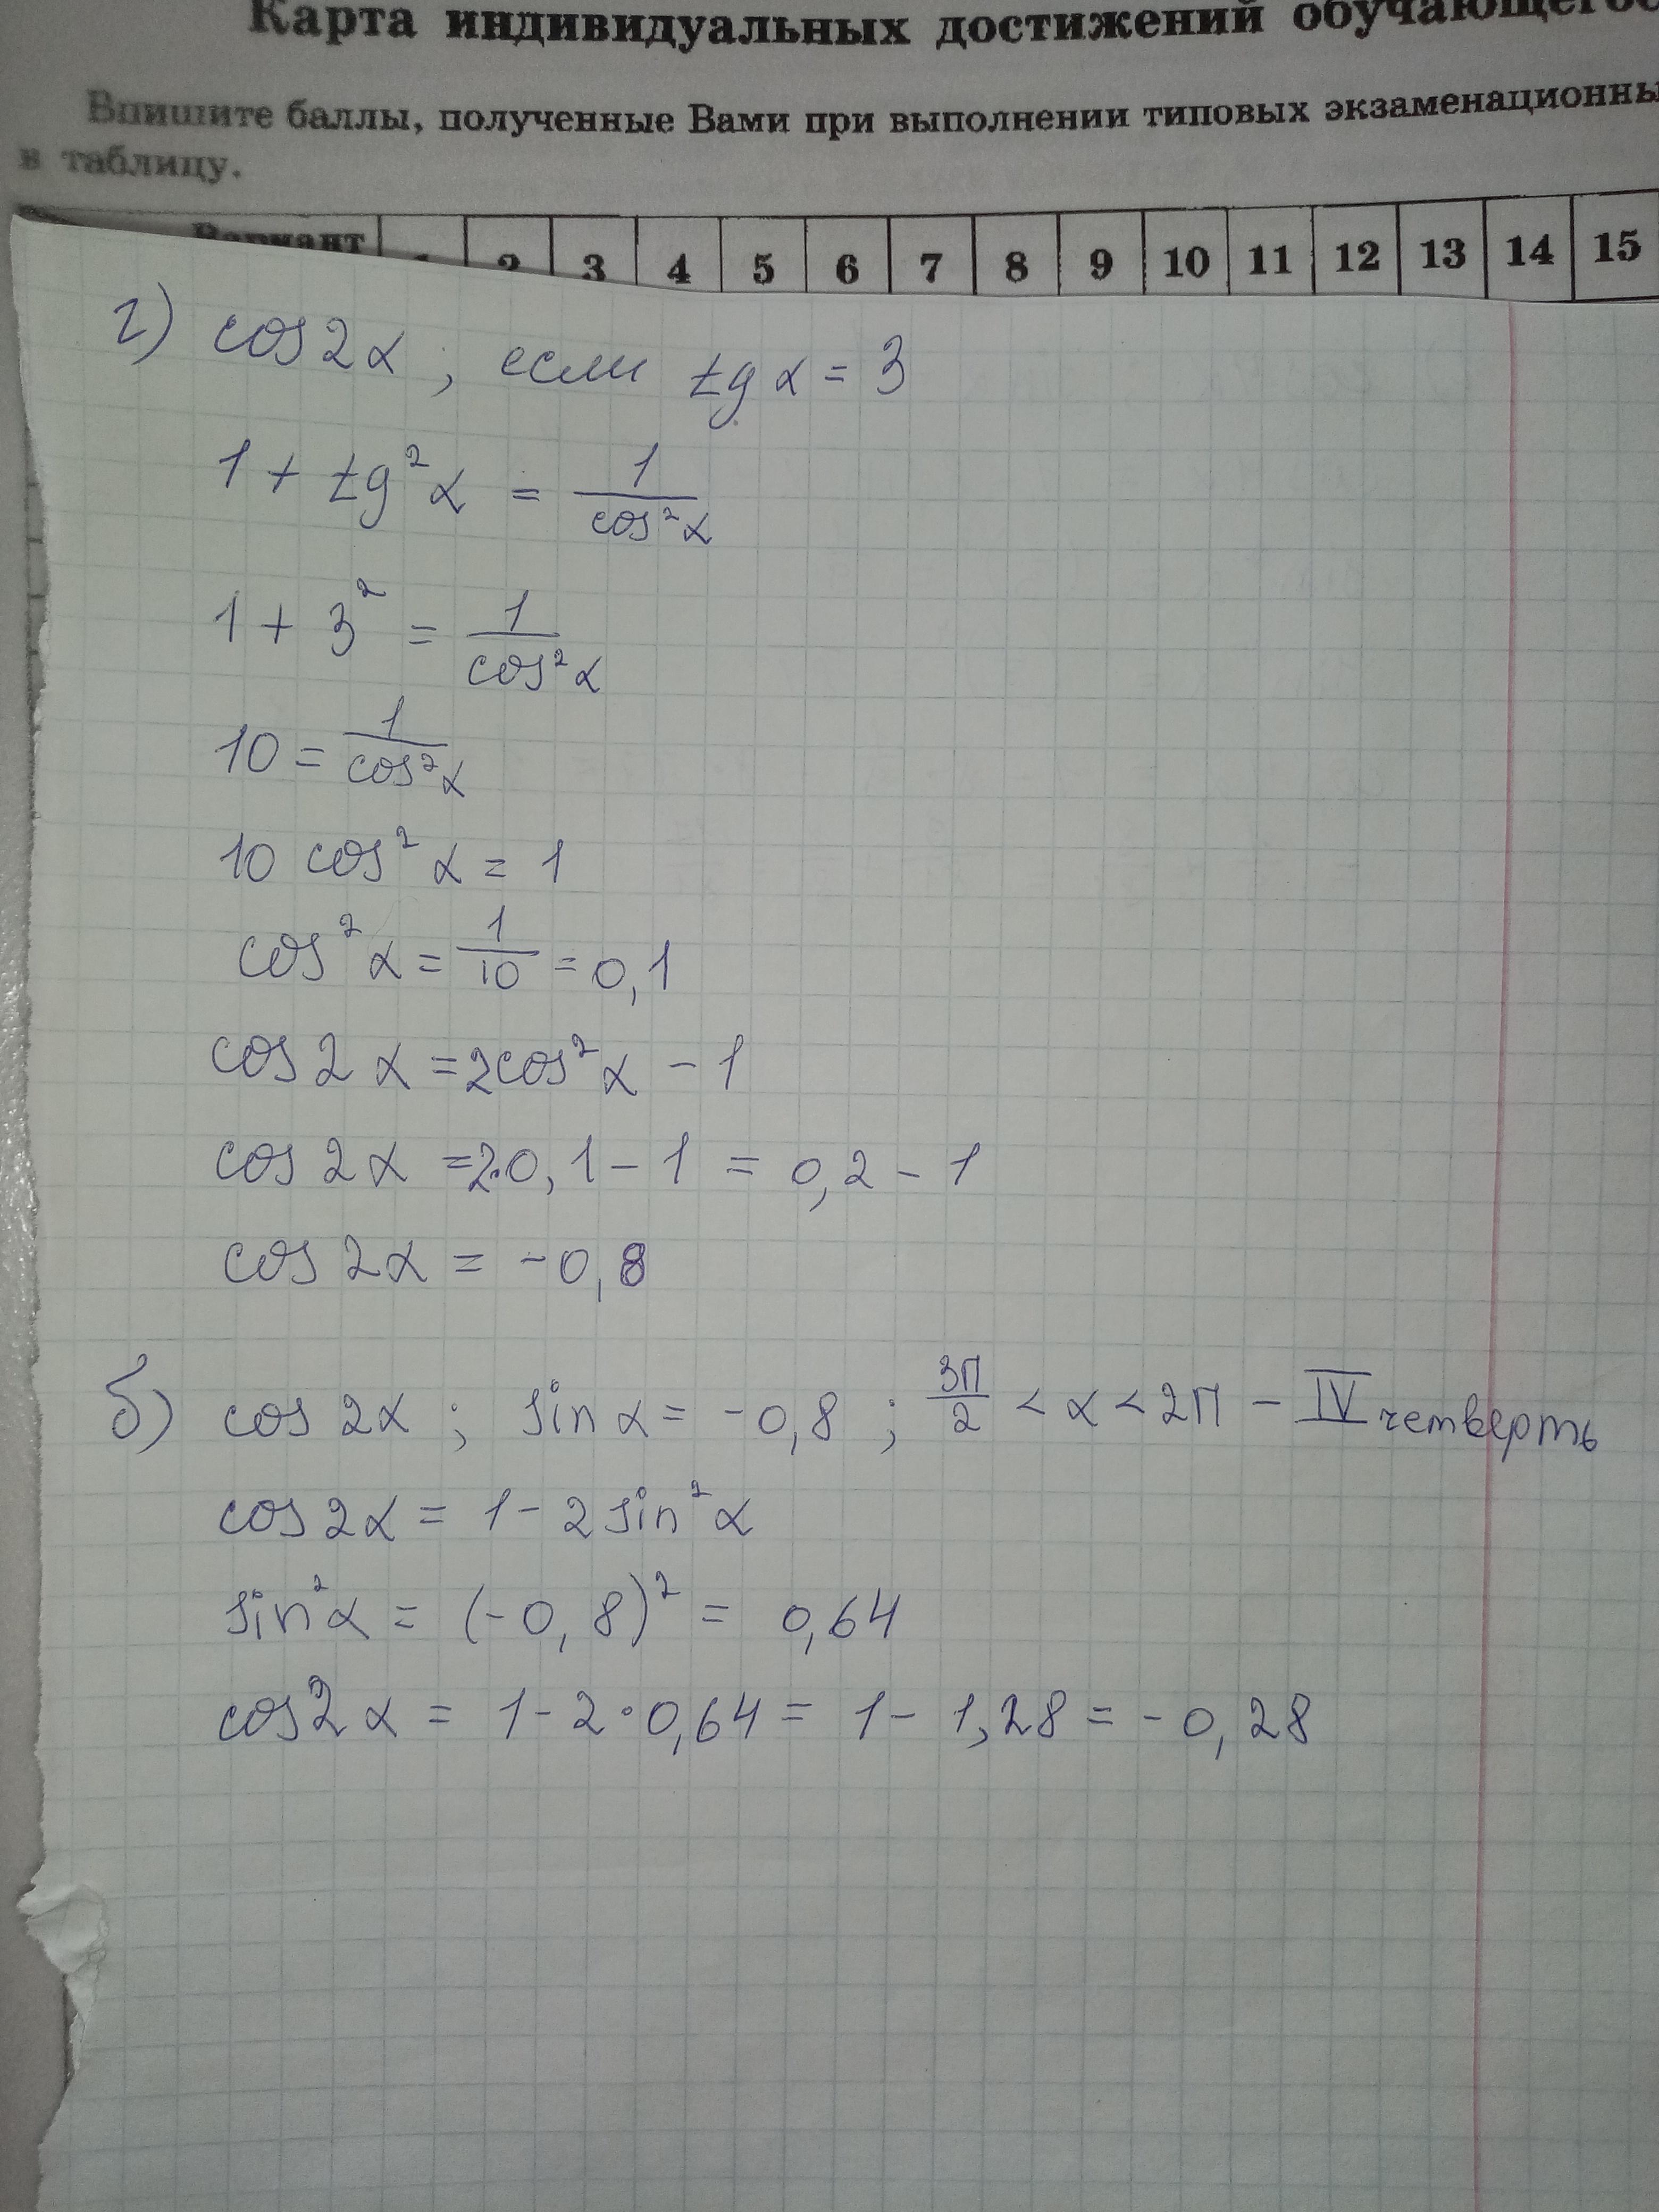 Карта индивидуальных достижений обучающегос
Впишите баллы, полученные Вами при выполнении типовых экзаменационны
в таблицу.
Вариант 1 2 3 4 5 6 7 8 9 10 11 12 13 14 15
г) cos2α ; если tgα = 3
1 + tg²α = 1/cos²α
1 + 3² = 1/cos²α
10 = 1/cos²α
10 cos²α = 1
cos²α = 1/10 = 0,1
cos2α = 2cos²α - 1
cos2α = 2·0,1 - 1 = 0,2 - 1
cos2α = -0,8
б) cos 2α ; sinα = -0,8 ; 3П/2 < α < 2П - IV четверть
cos2α = 1 - 2sin²α
sin²α = (-0,8)² = 0,64
cos2α = 1 - 2·0,64 = 1 - 1,28 = -0,28